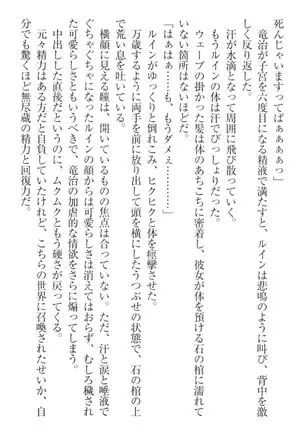 死んじゃいますってばぁぁぁぁっ」
竜治が子宮を六度目になる精液で満たすと、ルインは悲鳴のように叫び、背中を激
しく反り返した。
汗が水滴となって周囲に飛び散っていく。
もうルインの体は汗でびっしょりだった。
ウェーブの掛かった髪は体のあちこちに密着し、彼女が体を預ける石の棺にも濡れて
いない箇所はないほどだ。
「はぁはぁ……もうダメぇ…………」
ルインがゆっくりと倒れこみ、ヒクヒクと体を痙攣させる。
万歳するように両手を前に放り出して頭を横にしたうつぶせの状態で、石の棺の上
で荒い息を吐いている。
横顔に見える瞳は、開いているものの焦点は合っていない。ただ、汗と涙と唾液で
ぐちゃぐちゃになったルインの顔からは可愛らしさは消えてはおらず、むしろ穢され
た可愛らしさともいうべきで、竜治の加虐的な情欲をさらに煽ってしまう。
中出しした直後だというのに、ムクムクともう硬さが戻ってくる。
元々精力はある方だと自負していたけれど、こちらの世界に召喚されたせいか、自
分でも驚くほど無尽蔵の精力と回復力だ。